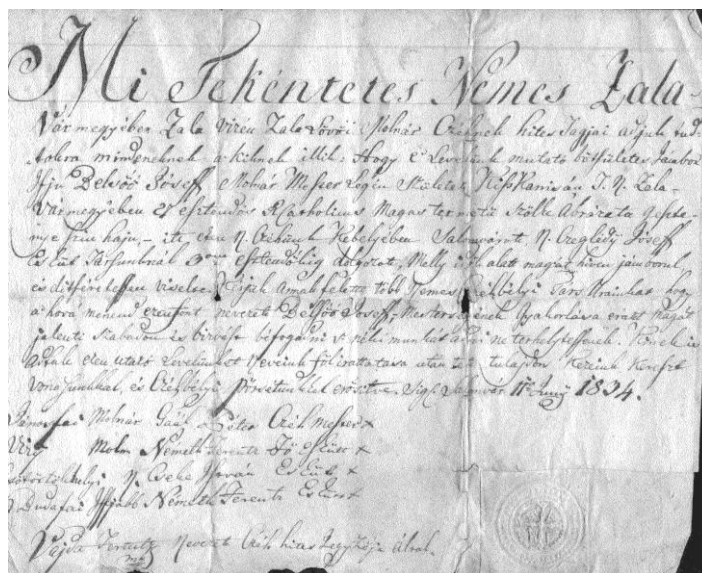 Mi Tekéntetes Nemes Zala-
Vármegyében Zala Vizén Zala Lövői Molnár Czéhnek hites Tagjai adjuk tud-
tokra mindeneknek a kiknek illik: Hogy ě Levelünk mutató böts​ületes Jámbor
Ifju Delsőő Jóseff Molnár Mester Legén Született Kiss Kanisán T. N. Zala-
Vármegyében 21 esztendős Katholicus Magas termetü Szőlle Ábrázatu Geszte-
nye szin haju,– itt ezen N. Czéhünk Kebelyében Salomvárt, N. Czeglédy Jóseff
Eskütt Társunknál esztendőkig dolgozott, Melly idő alatt magát hiven jámborul,
és ditséretessen viselte
a hova menend ezenfönt nevezett Delsőő Josef, Mesterségének Gyakorlása erant Magát
jelenti Szabadon és bizvást béfogadni s néki munkát adni ne terheltessenek. Kinek is
adtuk ezen utazó Levelünket Neveink fölirattatása után tett tulajdon Kezünk Kereszt
vonásunkkal, és Czéhbéli Pötsétünkkel erősitve. Sig. Salomvár 11a Juny 1834.
Jánosfai Molnár Gaál Péter Czéh Mester x
Molnr Nemeth Ferentz Fő Eskütt x
N. Cseke István Eskütt x
Dusafai Iffjabb Németh Ferentz Eskütt x
Vajda Ferentz Nevezett Czéh hites Jegyzője által.